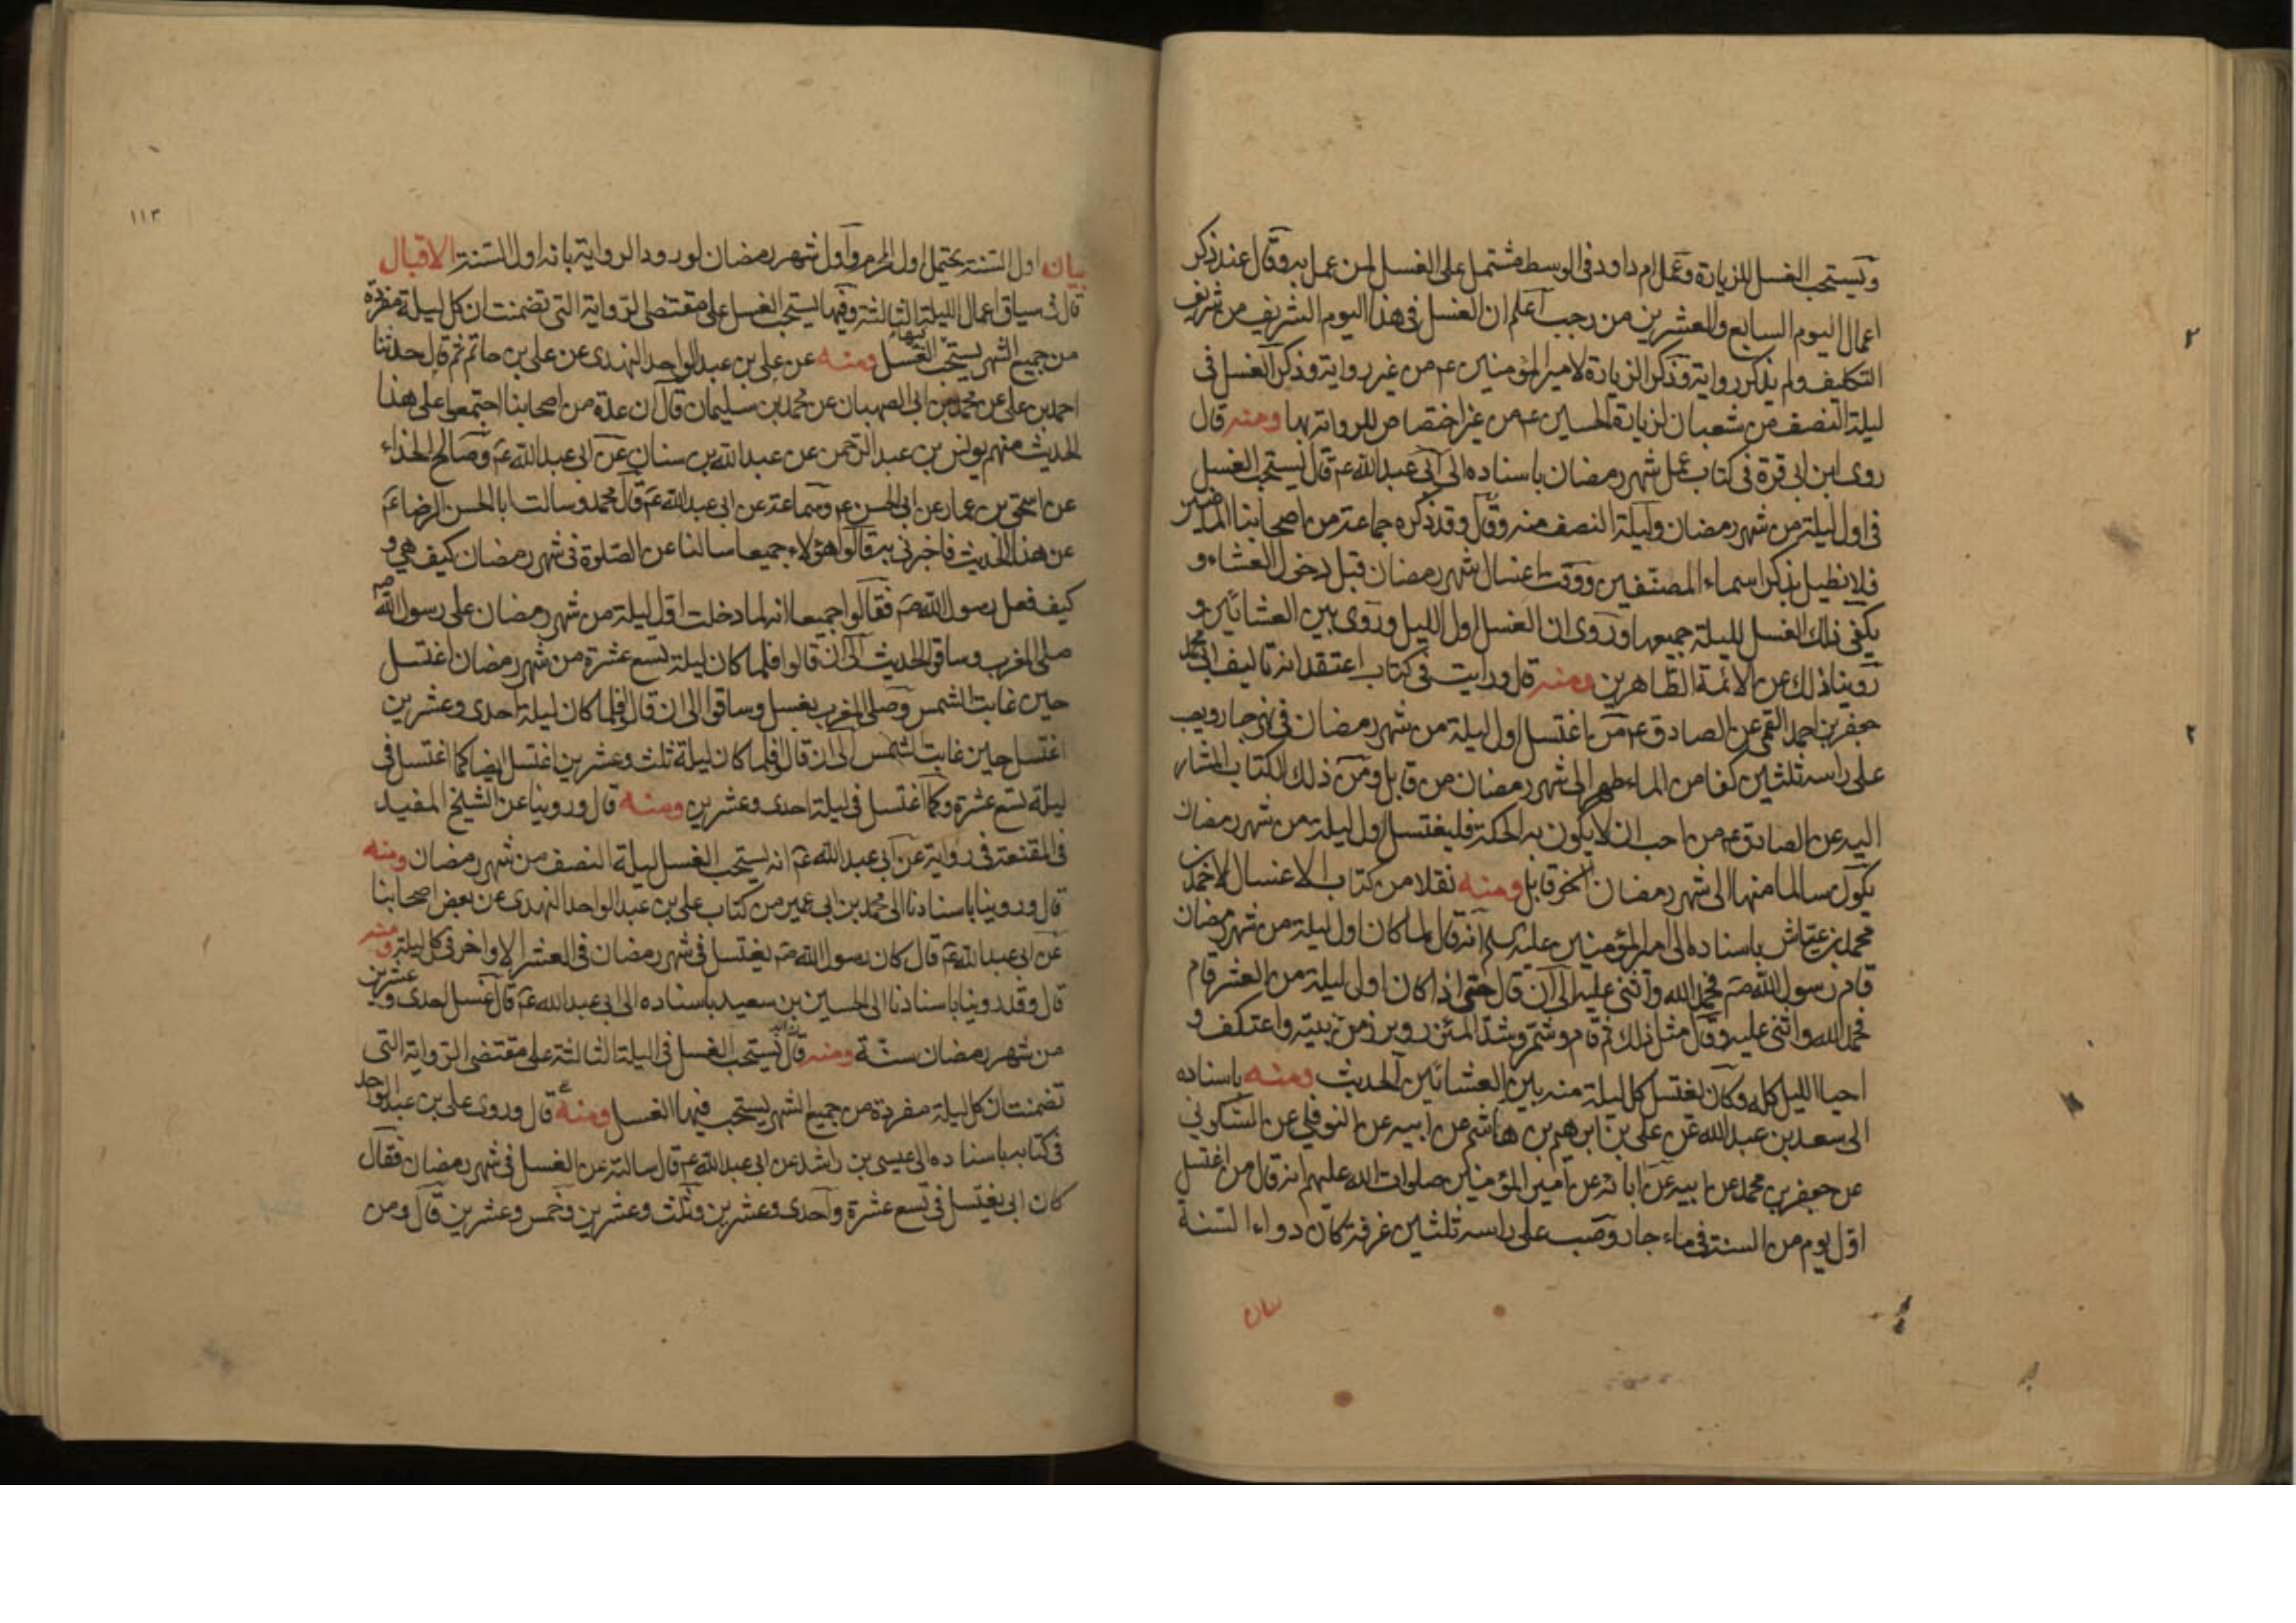 ويستحب الغسل للزيارة وعمل ام داود في الوسط مشتمل على الغسل لمن عمل به وقال عند ذكر
اعمال اليوم السابع والعشرين من رجب اعلم ان الغسل في هذا اليوم الشريف من شريف
التكليف ولم يذكر رواية وذكر الزيارة لامير المؤمنين عم من غير رواية وذكر الغسل في
ليلة النصف من شعبان لزيارة الحسين عم من غير اختصاص للرواية بها ومنه قال
روى ابن ابي قرة في كتاب عمل شهر رمضان باسناده الى ابي عبدالله عم قال يستحب الغسل
في اول ليلة من شهر رمضان وليلة النصف منه وقال وقد ذكره جماعة من اصحابنا الماضين
فلا نطيل بذكر اسماء المصنفين ووقت اغتسال شهر رمضان قبل دخول العشاء و
يكفي ذلك الغسل لليلة جميعها وروى ان الغسل اول الليل وروى بين العشائين و
روينا ذلك عن الائمة الطاهرين ومنه قال ورايت في كتاب اعتقد انه تاليف ابي محمد
جعفر بن احمد القمي عن الصادق عم من اغتسل اول ليلة من شهر رمضان في نهر جار ويصب
على راسه ثلثين كفا من الماء طهر الى شهر رمضان من قابل ومن ذلك الكتاب المشار
اليه عن الصادق عم من احب ان لا يكون به الحكة فليغتسل اول ليلة من شهر رمضان
يكون سالما منها الى شهر رمضان قابل ومنه نقلا من كتاب الاغسال لاحمد بن
محمد بن عياش باسناده الى امير المؤمنين عليه السلم انه قال لما كان اول ليلة من شهر رمضان
قام رسول الله صم فحمد الله واثنى عليه الى ان قال حتى اذا كان اول ليلة من العشر قام
فحمد الله واثنى عليه وقال مثل ذلك ثم قام وشمر وشد المئزر وبرز من بيته واعتكف و
احيا الليل كله وكان يغتسل كل ليلة منه بين العشائين الحديث ومنه باسناده
الى سعد بن عبد الله عن علي بن ابرهيم بن هاشم عن ابيه عن النوفلي عن السكوني
عن جعفر بن محمد عن ابيه عن ابائه عن امير المؤمنين صلوات الله عليهم انه قال من اغتسل
اول يوم من السنة في ماء جار وصب على راسه ثلثين غرفة كان دواء السنة
بيان
١١٣
بيان اول السنة يحتمل اول المحرم واول شهر رمضان لورود الرواية بانه اول السنة الاقبال
قال في سياق اعمال الليلة الثالثة وفيها يستحب الغسل على مقتضى الرواية التي تضمنت ان كل ليلة مفردة
من جميع الشهر يستحب فيها الغسل ومنه عن علي بن عبد الواحد النهدى عن علي بن حاتم ثم قال حدثنا
احمد بن علي عن محمد بن ابي الصهبان عن محمد بن سليمان قال ان عدة من اصحابنا اجتمعوا على هذا
الحديث منهم يونس بن عبد الرحمن عن عبدالله بن سنان عن ابي عبدالله عم وصالح الحذاء
عن اسحق بن عمار عن ابي الحسن عم وسماعة عن ابي عبدالله عم قال محمد وسالت ابا الحسن الرضا عم
عن هذا الحديث فاخبرني به قالوا هؤلاء جميعا سالنا عن الصلوة في شهر رمضان كيف هي و
كيف فعل رسول الله صم فقالوا جميعا انه لما دخلت اول ليلة من شهر رمضان على رسول الله صم
صلى المغرب وساق الحديث الى ان قالوا فلما كان ليلة تسع عشرة من شهر رمضان اغتسل
حين غابت الشمس وصلى المغرب بغسل وساقوا الى ان قالوا فلما كان ليلة احدى وعشرين
اغتسل حين غابت الشمس الى ان قالوا فلما كان ليلة ثلث وعشرين اغتسل ايضا كما اغتسل في
ليلة تسع عشرة وكما اغتسل في ليلة احدى وعشرين ومنه قال وروينا عن الشيخ المفيد
في المقنعة في رواية عن ابي عبدالله عم انه يستحب الغسل ليلة النصف من شهر رمضان ومنه
قال وروينا باسنادنا الى محمد بن ابي عمير من كتاب علي بن عبد الواحد النهدى عن بعض اصحابنا
عن ابي عبدالله عم قال كان رسول الله صم يغتسل في شهر رمضان في العشر الاواخر في كل ليلة ومنه
قال وقد روينا باسنادنا الى الحسين بن سعيد باسناده الى ابي عبدالله عم قال غسل احدى وعشرين
من شهر رمضان سنة ومنه قال يستحب الغسل في الليلة الثالثة على مقتضى الرواية التي
تضمنت ان كل ليلة مفردة من جميع الشهر يستحب فيها الغسل ومنه قال وروى علي بن عبد الواحد
في كتابه باسناده الى عيسى بن راشد عن ابي عبدالله عم قال سالته عن الغسل في شهر رمضان فقال
كان ابي يغتسل في تسع عشرة واحدى وعشرين وثلث وعشرين وخمس وعشرين قال ومن